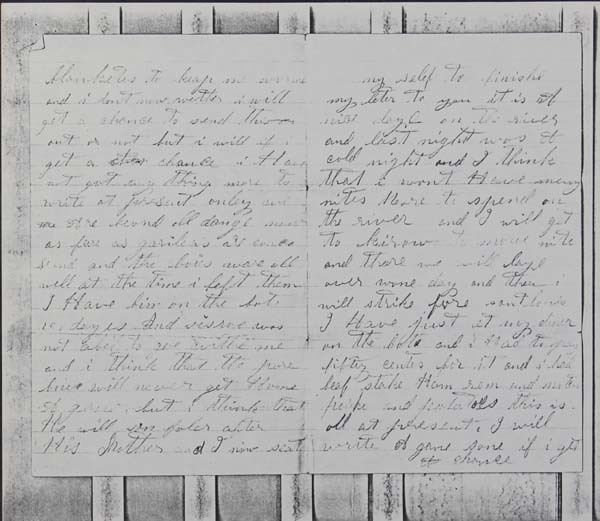 blanketes to keap me worme
and i dont now wether i will
get a chence to send this
out or not but i will if i
get a chance i Have
not got any thing more to
write at present onley
we are beond all dange now
as fare as garileas are conce
and the bois ware all
well at the time i left them
I Have bin on the bot
10 dayes And sissroe was
not abel to goe withe me
and i think that the pore
will never get Home
A gane but i think that
He will son foler after
His Mother and I now seat
my self to finish
my leter to you it is A
nice day on the river
and last night was A
cold night and I think
that i wont Have meny
nites More to spend on
the river and I will get
to to morow nite
and there we will lay
over wone day and then i
will strike fore
I Have just et my diner
on the bote and i Had to pay
fifty centes for it and i had
leaf stake Ham and
and potatoes this is
all at present, I will
write A gane sone if i get
A chance